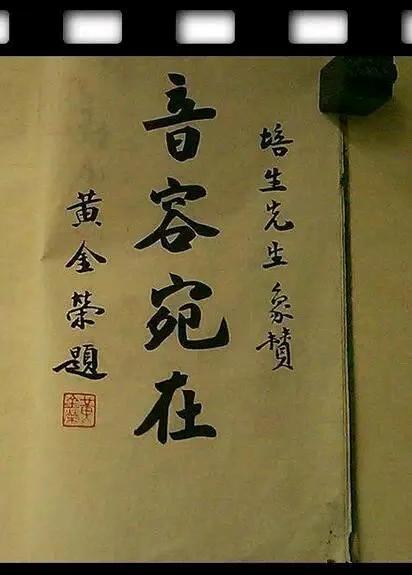 培生先生象贊
音容宛在
黃金榮題
黃金榮